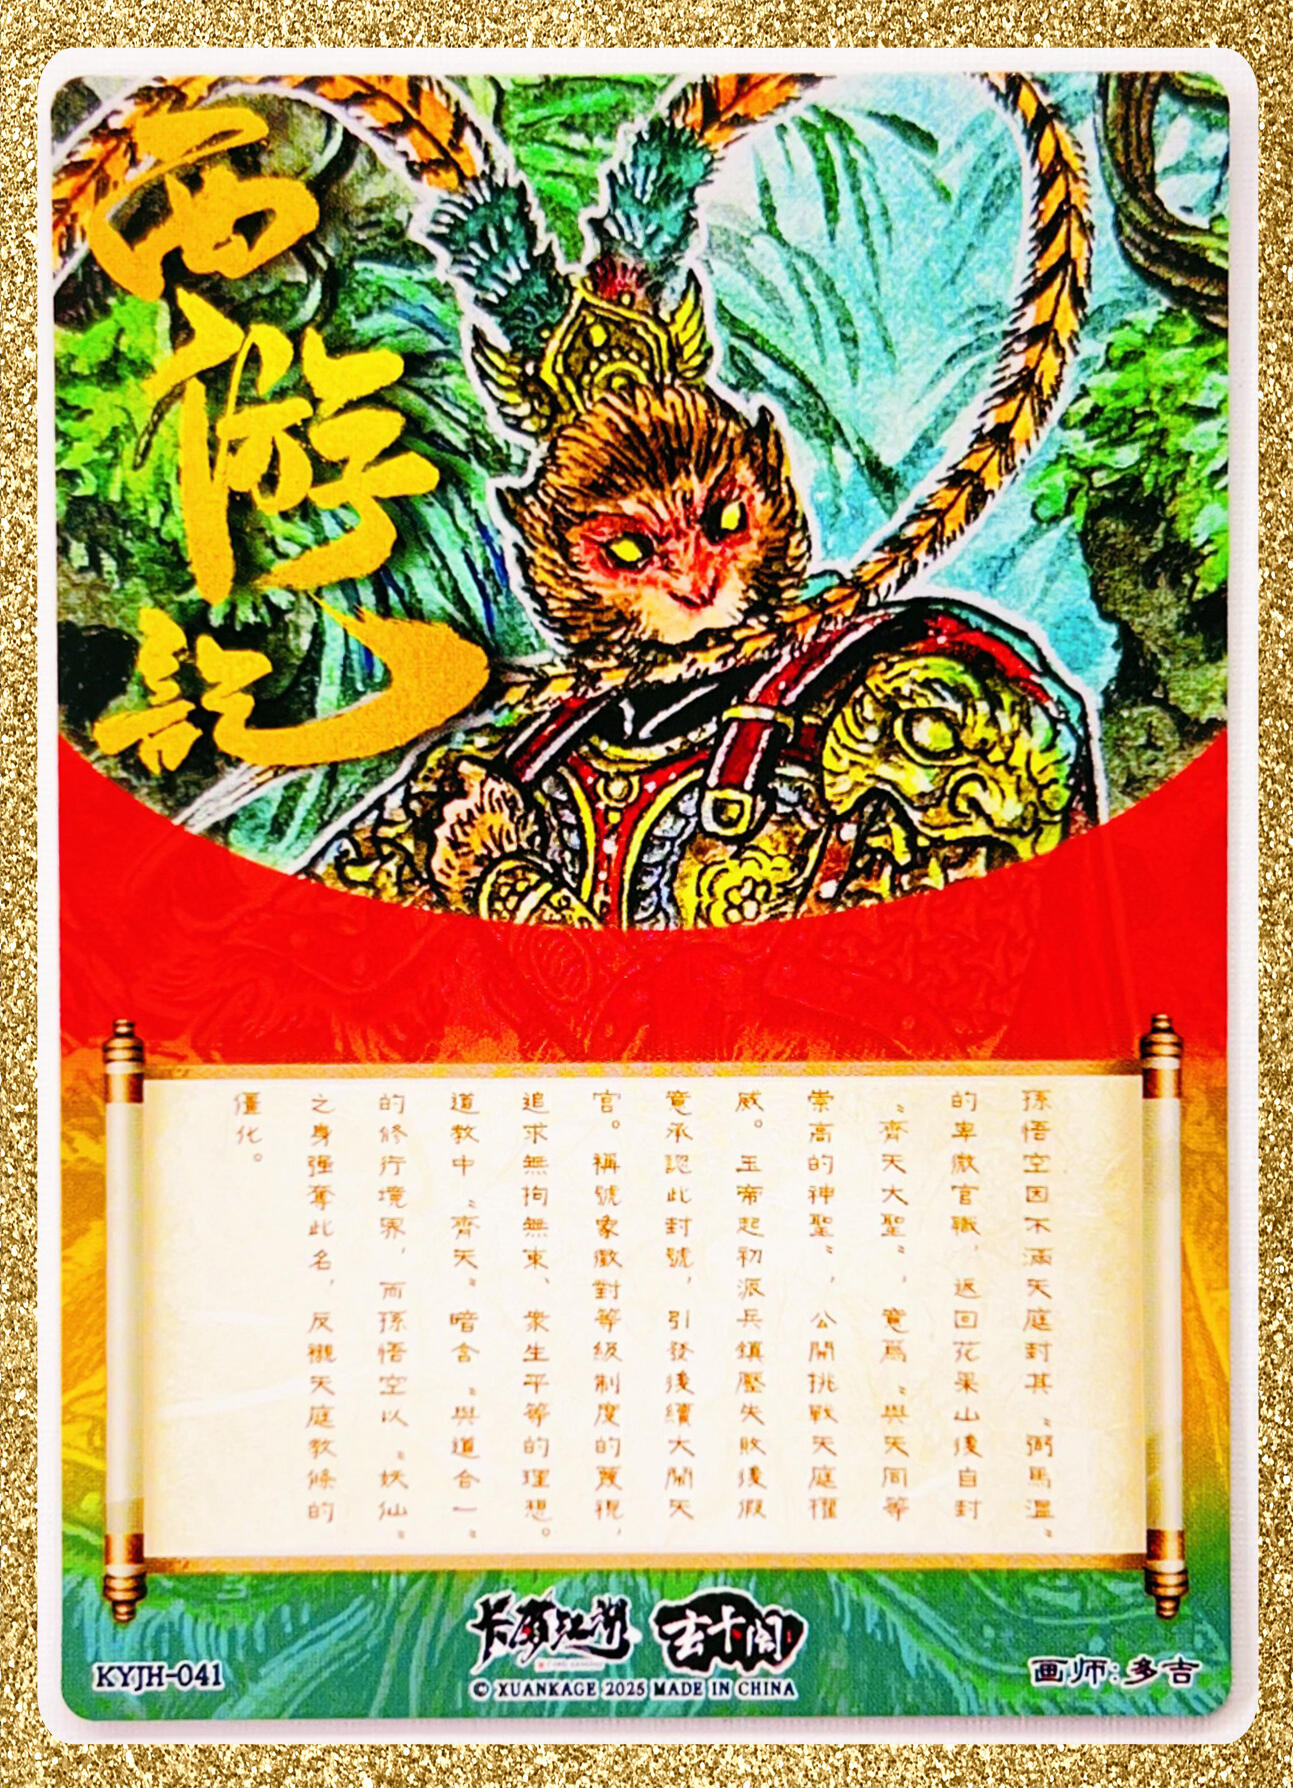 西游记
孫悟空因不滿天庭封其“弼馬溫”
的卑微官職，返回花果山後自封
“齊天大聖”，意爲“與天同等
崇高的神聖”，公開挑戰天庭權
威。玉帝起初派兵鎮壓失敗後假
意承認此封號，引發後續大鬧天
官。稱號象徵對等級制度的蔑視，
追求無拘無束、衆生平等的理想。
道教中“齊天”暗含“與道合一”
的修行境界，而孫悟空以“妖仙”
之身强奪此名，反襯天庭教條的
僵化。
卡游江湖 玄卡阁
KYJH-041
© XUANKAGE 2025 MADE IN CHINA
画师:多吉